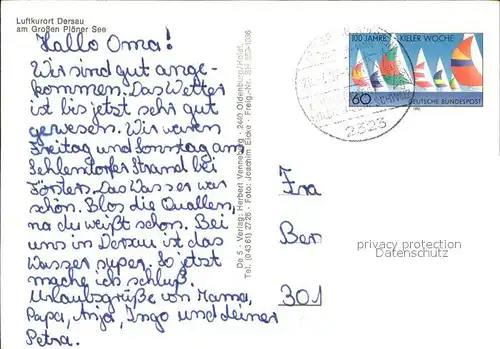 Luftkurort Dersau
am Großen Plöner See
Hallo Oma!
Wir sind gut ange-
kommen. Das Wetter
ist bis jetzt sehr gut
gewesen. Wir waren
Freitag und Sonntag am
Sehlendorfer Strand bei
Försters. Das Wasser war
schön. Blos die Quallen,
na du weißt schon. Bei
uns in Dersau ist das
Wasser super. So jetzt
mache ich schluß.
Urlaubsgrüße von Mama,
Papa, Anja, Ingo und deiner
Petra.
Da 5 - Verlag: Herbert Venneberg - 2440 Oldenburg/Holst.
Tel. (04361) 2726 - Foto: Joachim Eicke - Freig.-Nr.
100 JAHRE KIELER WOCHE
60
DEUTSCHE BUNDESPOST
2323
Fra
Ber
301
privacy protection
Datenschutz